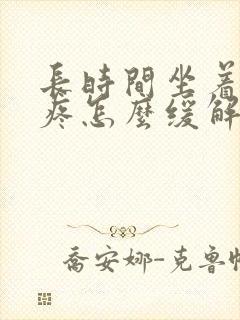 長時間坐着
疼怎麼緩解
喬安娜-克魯